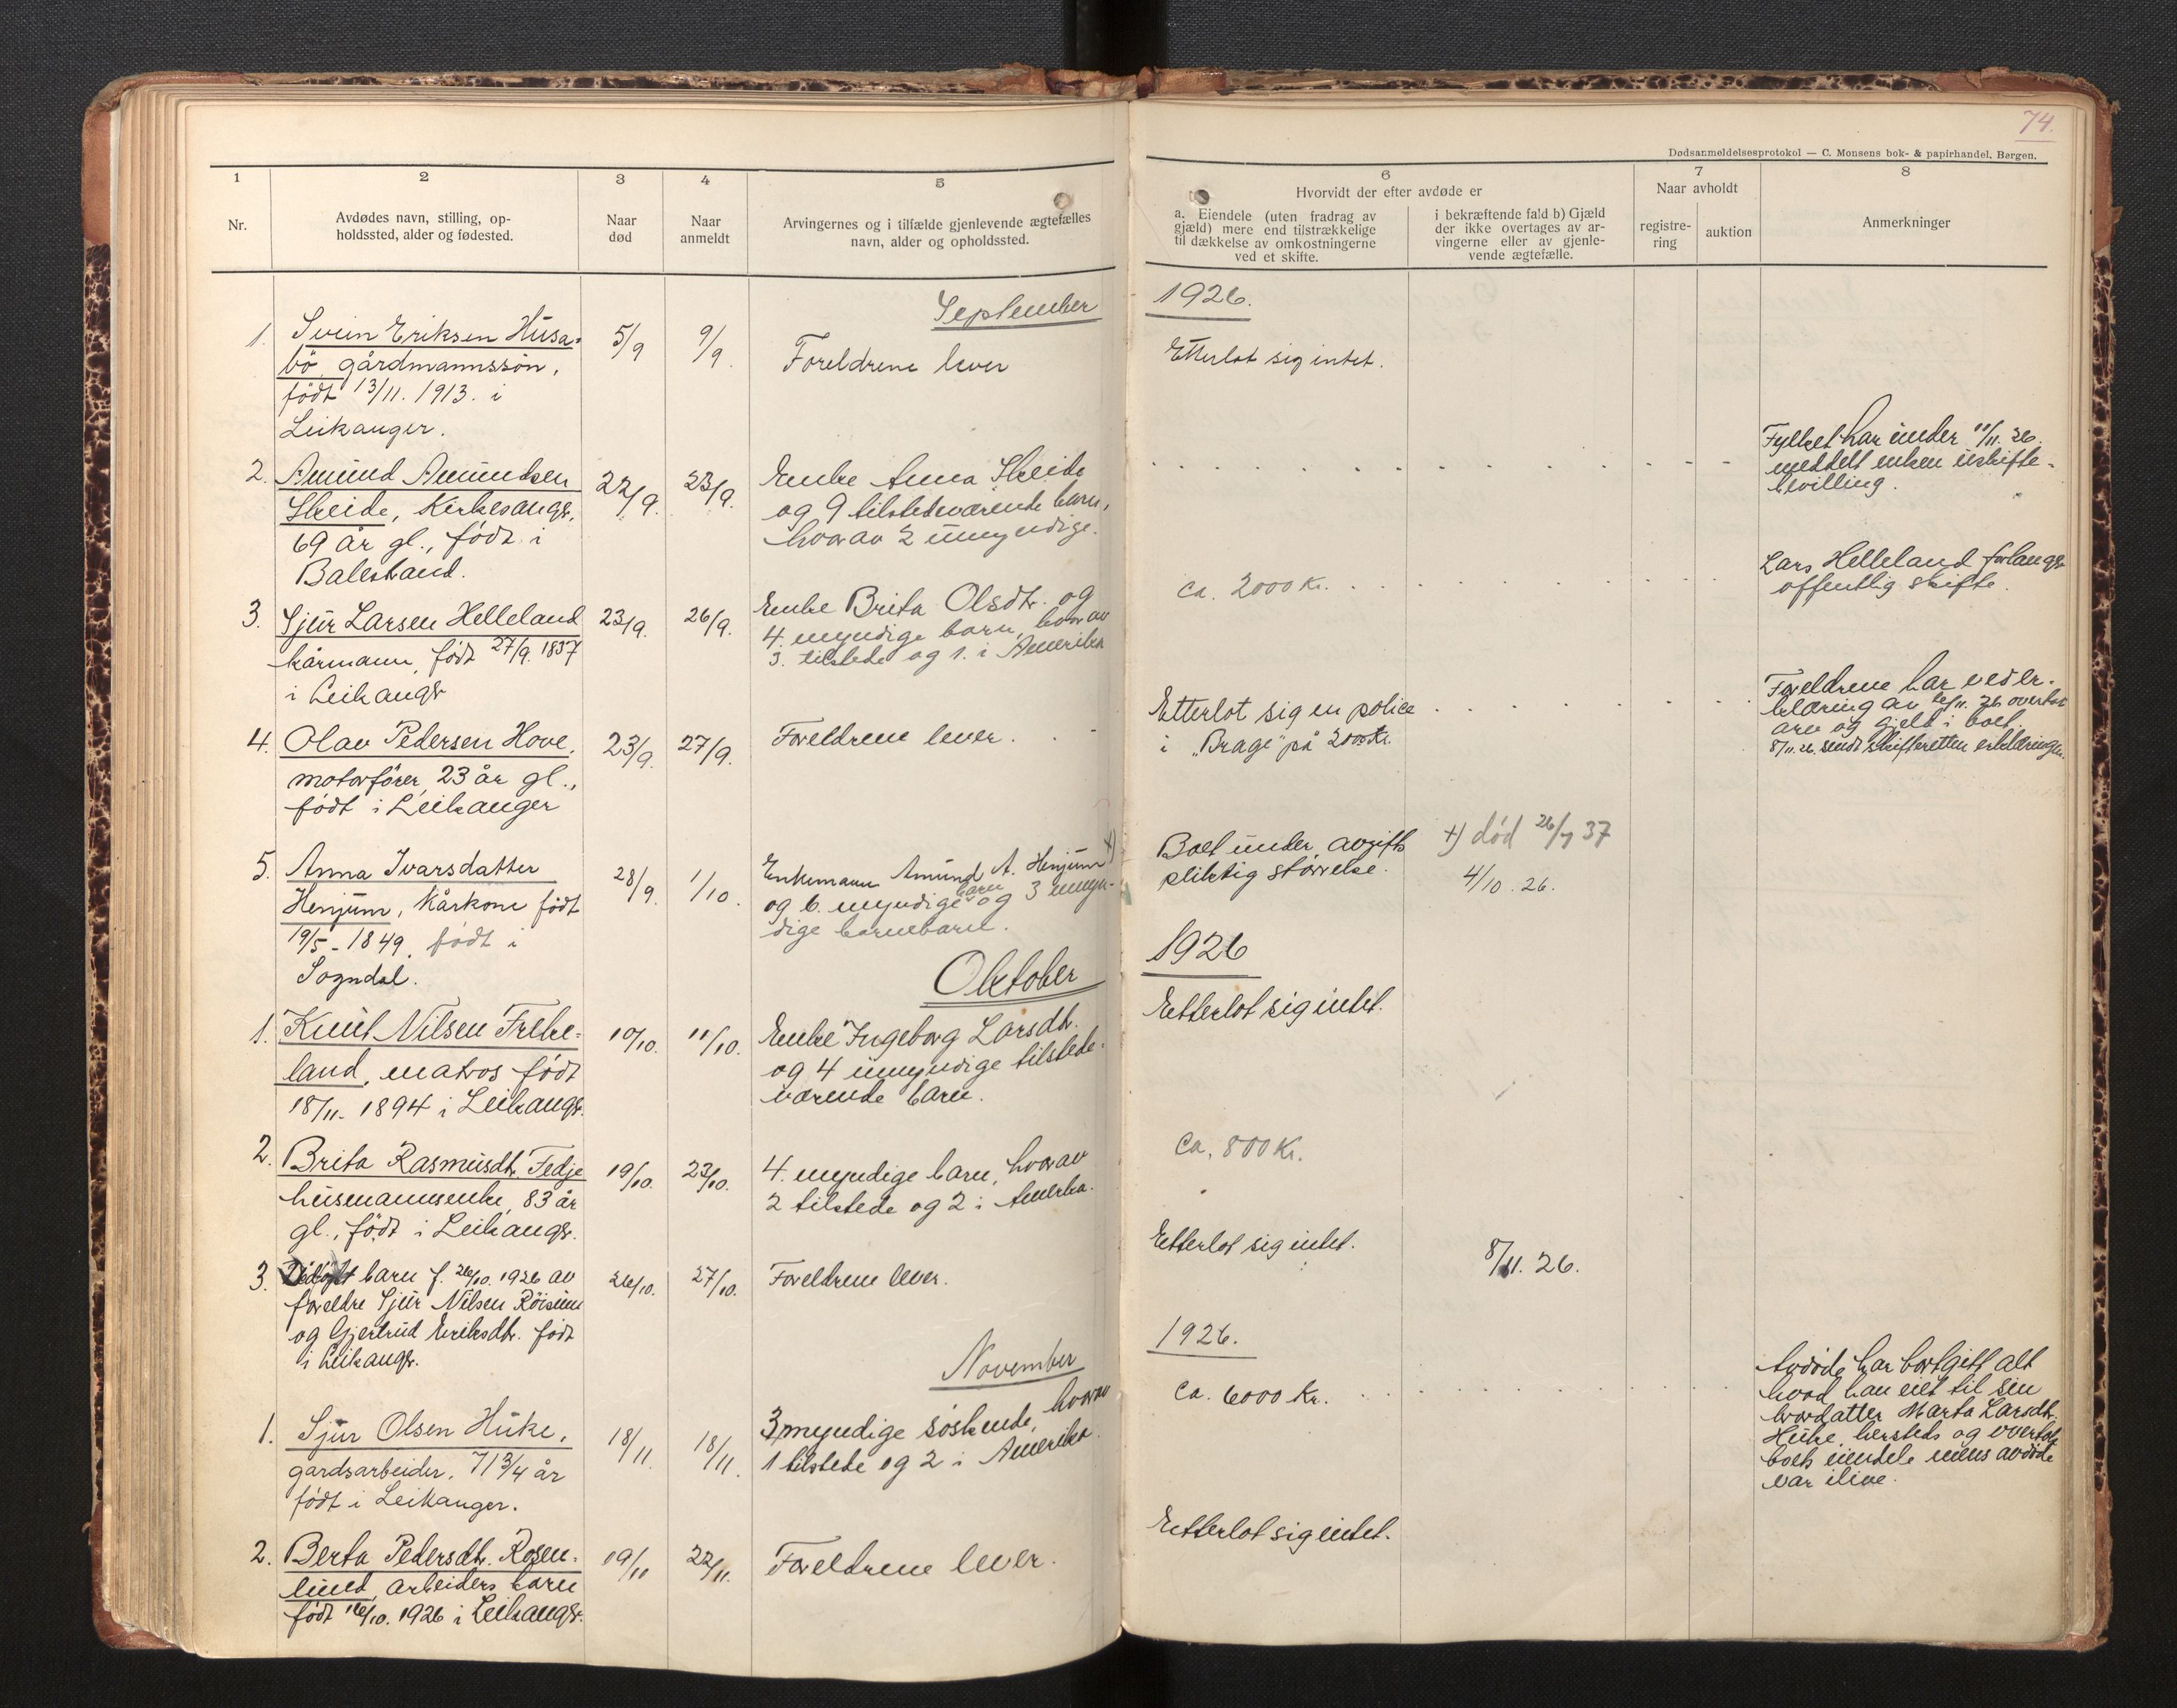 74.
Dødsanmeldelsesprotokol — C. Monsens bok- & papirhandel, Bergen.
1
2
3
4
5
6
7
8
Nr.
Avdødes navn, stilling, op-
holdssted, alder og fødested.
Naar
død
Naar
anmeldt
Arvingernes og i tilfælde gjenlevende ægtefælles
navn, alder og opholdssted.
Hvorvidt der efter avdøde er
a. Eiendele (uten fradrag av
gjæld) mere end tilstrækkelige
til dækkelse av omkostningerne
ved et skifte.
i bekræftende fald b) Gjæld
der ikke overtages av ar-
vingerne eller av gjenle-
vende ægtefælle.
Naar avholdt
registre-
ring
auktion
Anmerkninger
September
1926.
1.
Svein Eriksen Husa-
bö, gårdmannssön,
födt 13/11. 1913. i
Leikanger.
5/9
9/9.
Foreldrene lever
Etterlot sig intet.
2.
Amund Amundsen
Skeide, Kirkesangr,
69 år gl., födt i
Balestrand.
22/9.
23/9.
Enke Anna Skeide
og 9 tilstedeværende barn,
hvorav 2 umyndige.
Fylket har under 11/11. 26.
meddelt enken uskifte-
bevilling.
3.
Sjur Larsen Helleland
kårmann, födt 27/9. 1837
i Leikangr
23/9.
26/9.
Enke Brita Olsdtr. og
4. myndige barn, hvorav
3. tilstede og 1. i Amerika
ca. 2000 Kr.
Lars Helleland forlangr
offentlig skifte.
4.
Olav Pedersen Hove,
motorförer, 23 år gl.,
födt i Leikanger
23/9.
27/9.
Foreldrene lever.
Etterlot sig en police
i "Brage" på 2000 Kr.
Foreldrene har ved er-
klæring av 6/11. 26 overtat
arv og gjeld i boet.
8/11. 26. sendt skifteretten erklæringen.
5.
Anna Ivarsdatter
Henjum, kårkone födt
19/5 - 1849, födt i
Sogndal.
28/9.
1/10.
Enkemann Amund A. Henjum +)
og 6. myndige barn og 3 umyn-
dige barnebarn.
Boet under avgifts
pliktig störrelse.
+) död 26/7 37
4/10. 26.
Oktober
1926
1.
Knut Nilsen Frøke-
land, matros födt
18/11. 1894 i Leikangr.
10/10.
11/10.
Enke Ingeborg Larsdtr.
og 4 umyndige tilstede-
værende barn.
Etterlot sig intet.
2.
Brita Rasmusdtr. Fedje
husmannsenke, 83 år
gl., födt i Leikangr.
19/10.
23/10.
4. myndige barn, hvorav
2 tilstede og 2 i Amerka.
Ca. 800 Kr.
3.
barn f. 26/10. 1926 av
foreldre Sjur Nilsen Röisum
og Gjertrud Eriksdtr. födt
i Leikangr.
26/10.
27/10.
Foreldrene lever.
Etterlot sig intet.
8/11. 26.
November
1926.
1.
Sjur Olsen Huke,
gardsarbeider, 71 3/4 år
födt i Leikanger.
18/11
18/11.
3 myndige söskende, hvorav
1 tilstede og 2 i Amerika.
ca. 6000 Kr.
Avdöde har bortgitt alt
hvad han eiet til sin
brordatter Marta Larsdtr.
Huke, hersteds og overtok
boets eiendele mens avdöde
var ilive.
2.
Berta Pedersdtr. Rosen-
lund, arbeiders barn
födt 16/10. 1926 i Leikangr.
19/11
22/11.
Foreldrene lever.
Etterlot sig intet.